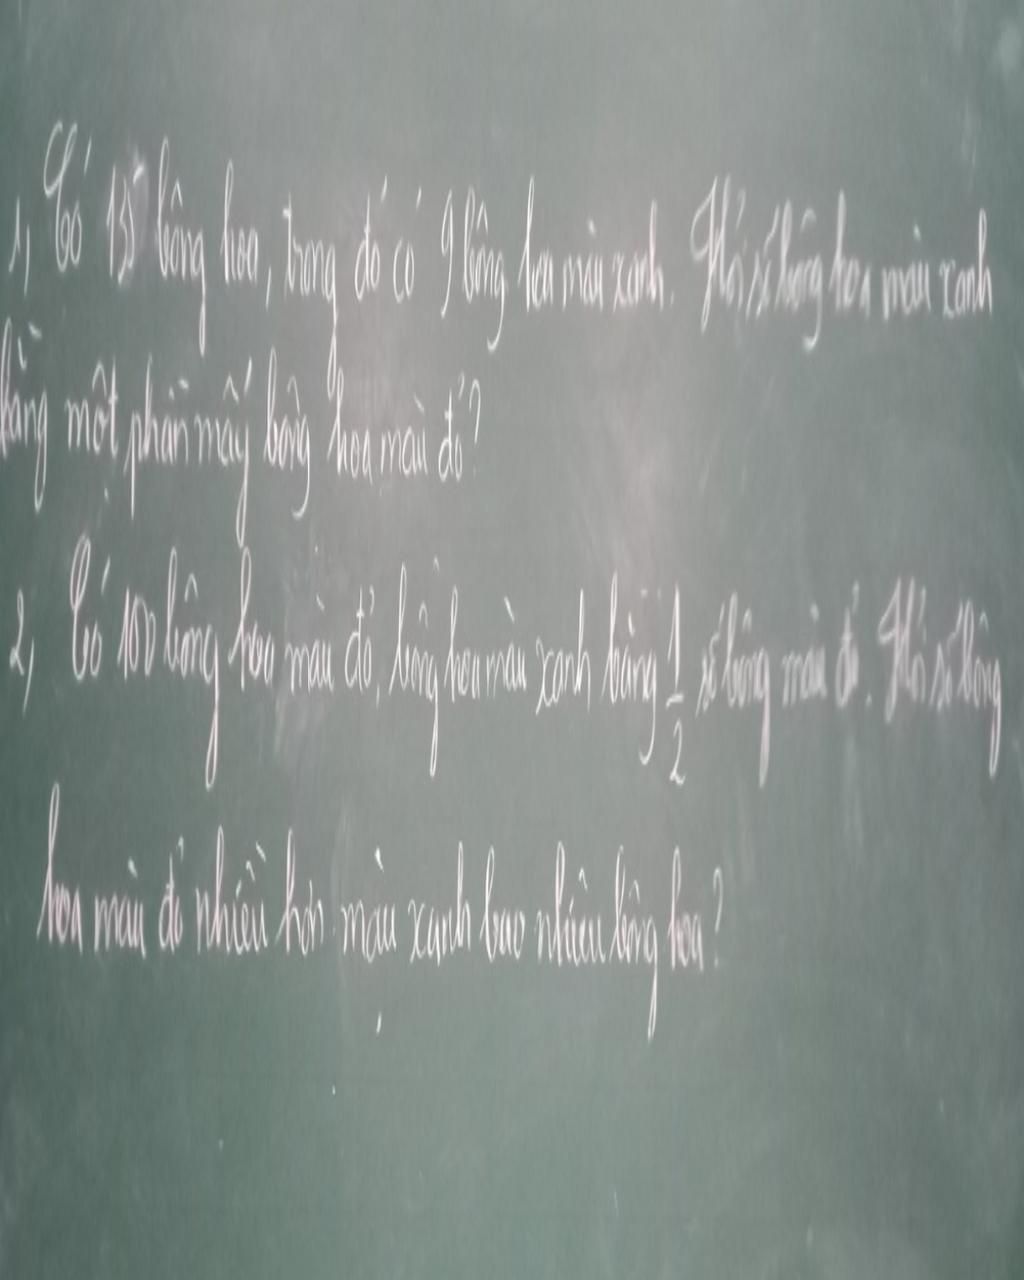 1, Có 135 bông hoa, trong đó có 9 bông hoa màu xanh. Hỏi số bông hoa màu xanh
bằng một phần mấy bông hoa màu đỏ?
2, Có 100 bông hoa màu đỏ, bông hoa màu xanh bằng 1/2 số bông màu đỏ. Hỏi số bông
hoa màu đỏ nhiều hơn màu xanh bao nhiêu bông hoa?